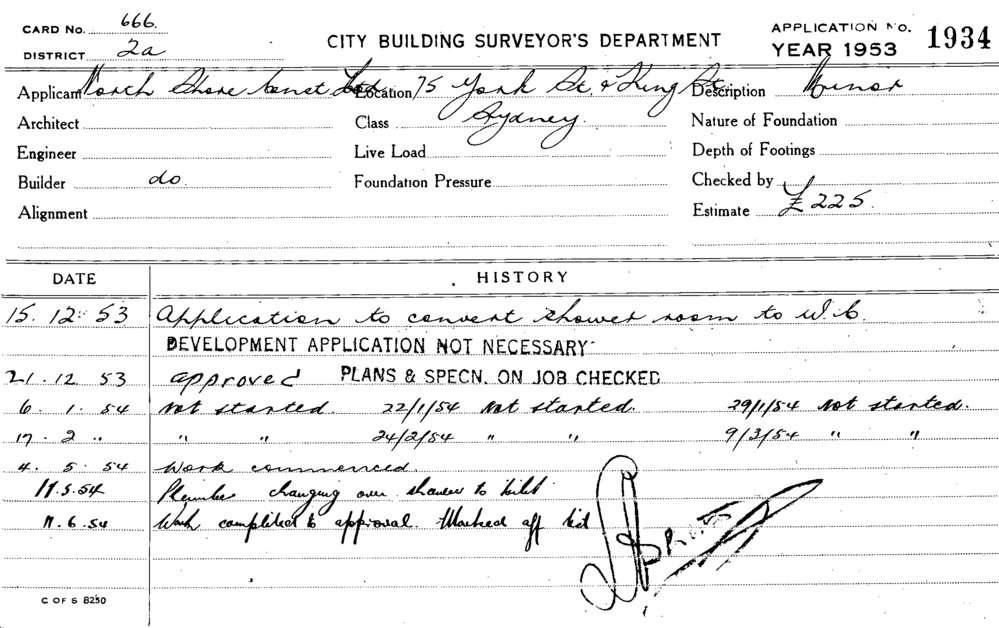 CARD No. 666.
DISTRICT 2a
CITY BUILDING SURVEYOR'S DEPARTMENT
APPLICATION No. 1934
YEAR 1953
Applicant North Shore Const Location 75 York St. & King St. Description Minor
Architect Class Sydney. Nature of Foundation
Engineer Live Load Depth of Footings
Builder do. Foundation Pressure Checked by
Alignment Estimate £ 225.
DATE HISTORY
15. 12. 53 Application to convert shower room to W.C.
DEVELOPMENT APPLICATION NOT NECESSARY
21. 12. 53 approved PLANS & SPECN. ON JOB CHECKED
6. 1. 54 Not started. 22/1/54 Not started. 29/1/54 Not started.
17. 2 " " " 24/2/54 " " 9/3/54 " "
4. 5. 54 Work commenced.
11.5.54 Plumber changing over shower to toilet
11.6.54 Work completed to approval. Marked off
C OF S 8250